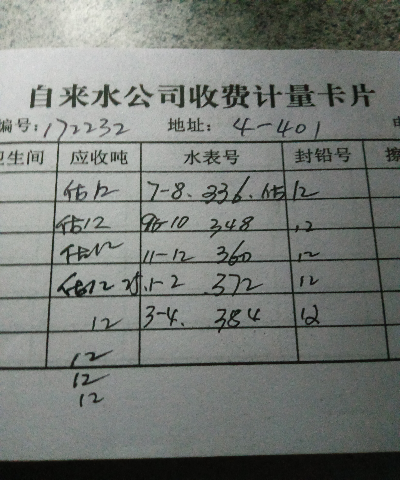 自来水公司收费计量卡片
编号: 172232 地址: 4-401
卫生间 应收吨 水表号 封铅号
估12 7-8. 336. 估12
估12 9-10 348 12
估12 11-12 360 12
估12 1-2 372 12
12 3-4. 384 12
12
12
12